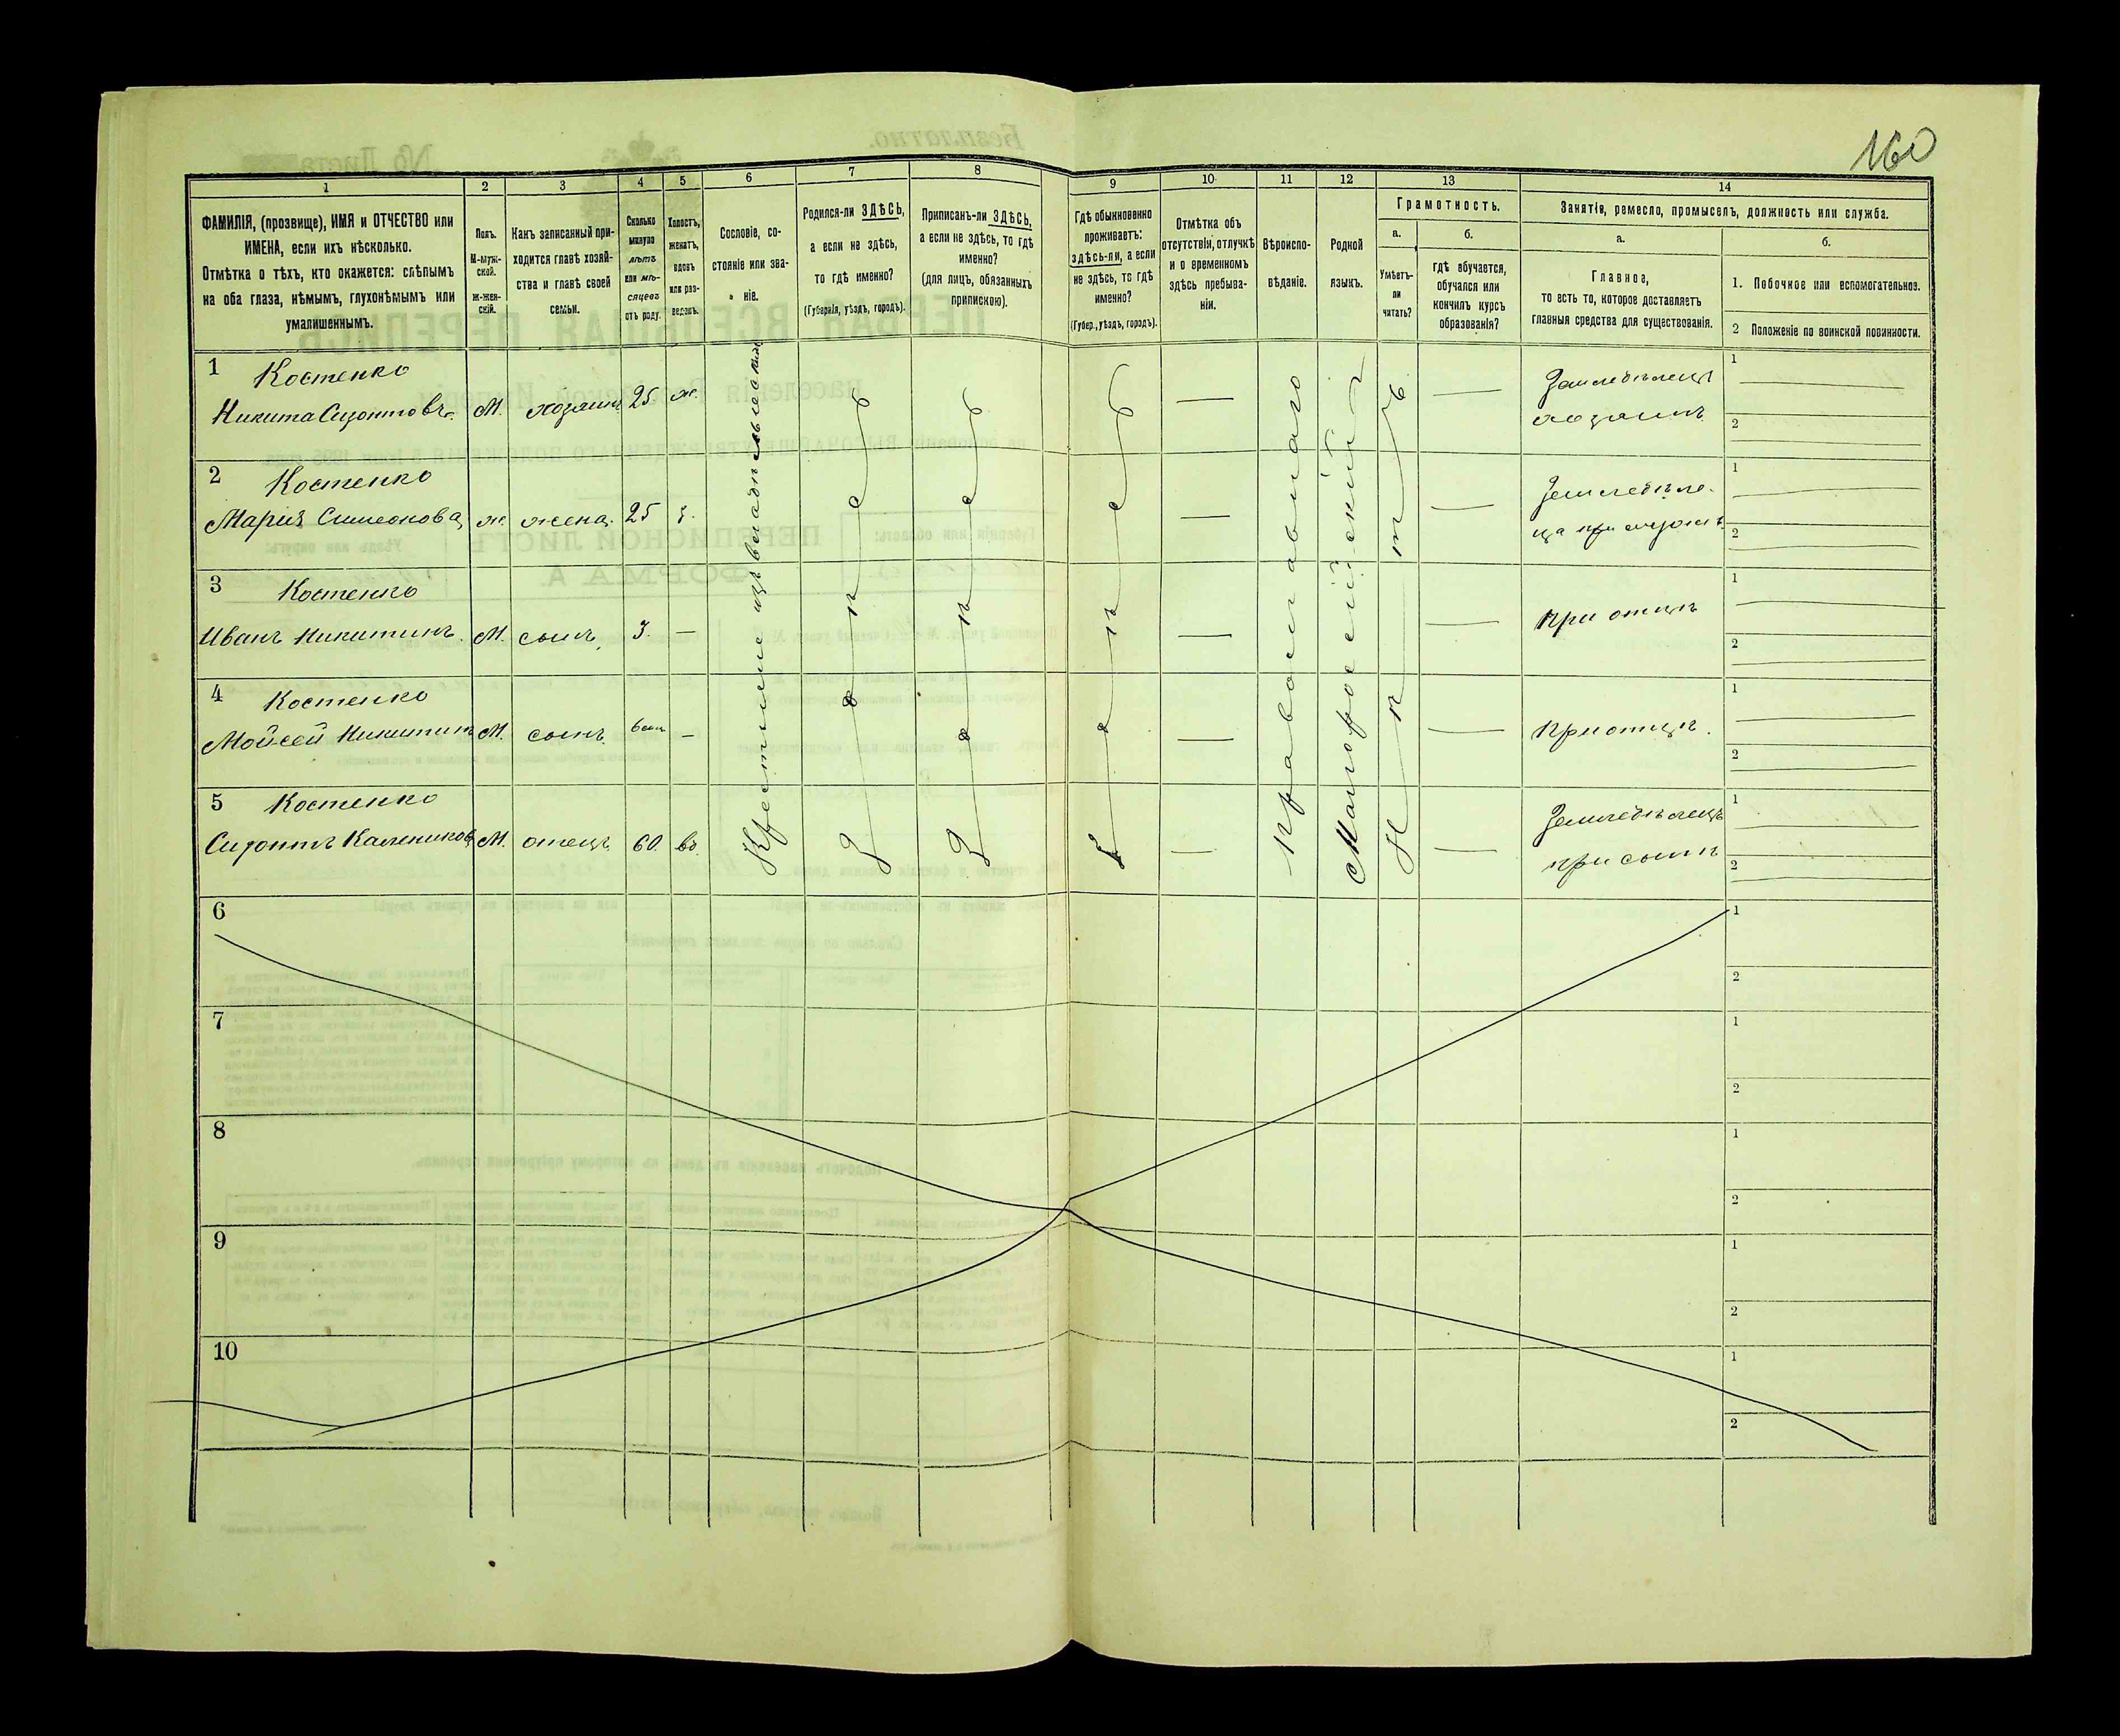 160
1
2
3
4
5
6
7
8
9
10
11
12
13
14
ФАМИЛІЯ, (прозвище), ИМЯ и ОТЧЕСТВО или
ИМЕНА, если ихъ нѣсколько.
Отмѣтка о тѣхъ, кто окажется: слѣпымъ
на оба глаза, нѣмымъ, глухонѣмымъ или
умалишеннымъ.
Полъ.
М-муж-
ской.
Ж-жен-
скій.
Какъ записанный при-
ходится главѣ хозяй-
ства и главѣ своей
семьи.
Сколько
минуло
лѣтъ
или мѣ-
сяцевъ
отъ роду.
Холостъ,
женатъ,
вдовъ
или раз-
веденъ.
Сословіе, со-
стояніе или зва-
ніе.
Родился-ли ЗДѢСЬ,
а если не здѣсь,
то гдѣ именно?
(Губернія, уѣздъ, городъ).
Приписанъ-ли ЗДѢСЬ,
а если не здѣсь, то гдѣ
именно?
(для лицъ, обязанныхъ
припискою).
Гдѣ обыкновенно
проживаетъ:
здѣсь-ли, а если
не здѣсь, то гдѣ
именно?
(Губер., уѣздъ, городъ).
Отмѣтка объ
отсутствіи, отлучкѣ
и о временномъ
здѣсь пребыва-
ніи.
Вѣроиспо-
вѣданіе.
Родной
языкъ.
Грамотность.
а.
Умѣетъ-
ли
читать?
б.
гдѣ обучается,
обучался или
кончилъ курсъ
образованія?
Занятіе, ремесло, промыселъ, должность или служба.
а.
Главное,
то есть то, которое доставляетъ
главныя средства для существованія.
б.
1. Побочное или вспомогательное.
2 Положеніе по воинской повинности.
1 Костенко
Никита Сизонтовъ. М. хозяинъ 25 ж.
Земледѣлецъ
хозяинъ
1
2
2 Костенко
Марія Симеонова ж. жена. 25 з.
Земледѣле-
ца при мужѣ
1
2
3 Костенко
Иванъ Никитинъ. М. сынъ. 3. —
При отцѣ
1
2
4 Костенко
Мойсей Никитинъ М. сынъ. —
При отцѣ.
1
2
5 Костенко
Сизонтъ Калениковъ М. отецъ. 60. вд.
Земледѣлецъ
при сынѣ
1
2
Крестьяне изъ владѣльческихъ
Здѣсь
Здѣсь
Здѣсь
Православнаго
Малороссійскій
Нѣтъ
6
1
2
7
1
2
8
1
2
9
1
2
10
1
2